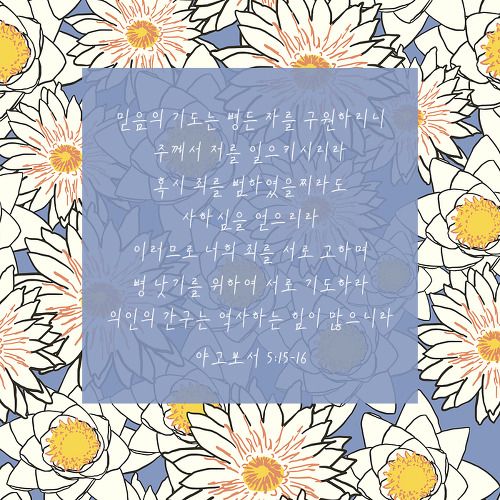 믿음의 기도는 병든 자를 구원하리니
주께서 저를 일으키시리라
혹시 죄를 범하였을찌라도
사하심을 얻으리라
이러므로 너희 죄를 서로 고하며
병 낫기를 위하여 서로 기도하라
의인의 간구는 역사하는 힘이 많으니라
야고보서 5:15-16